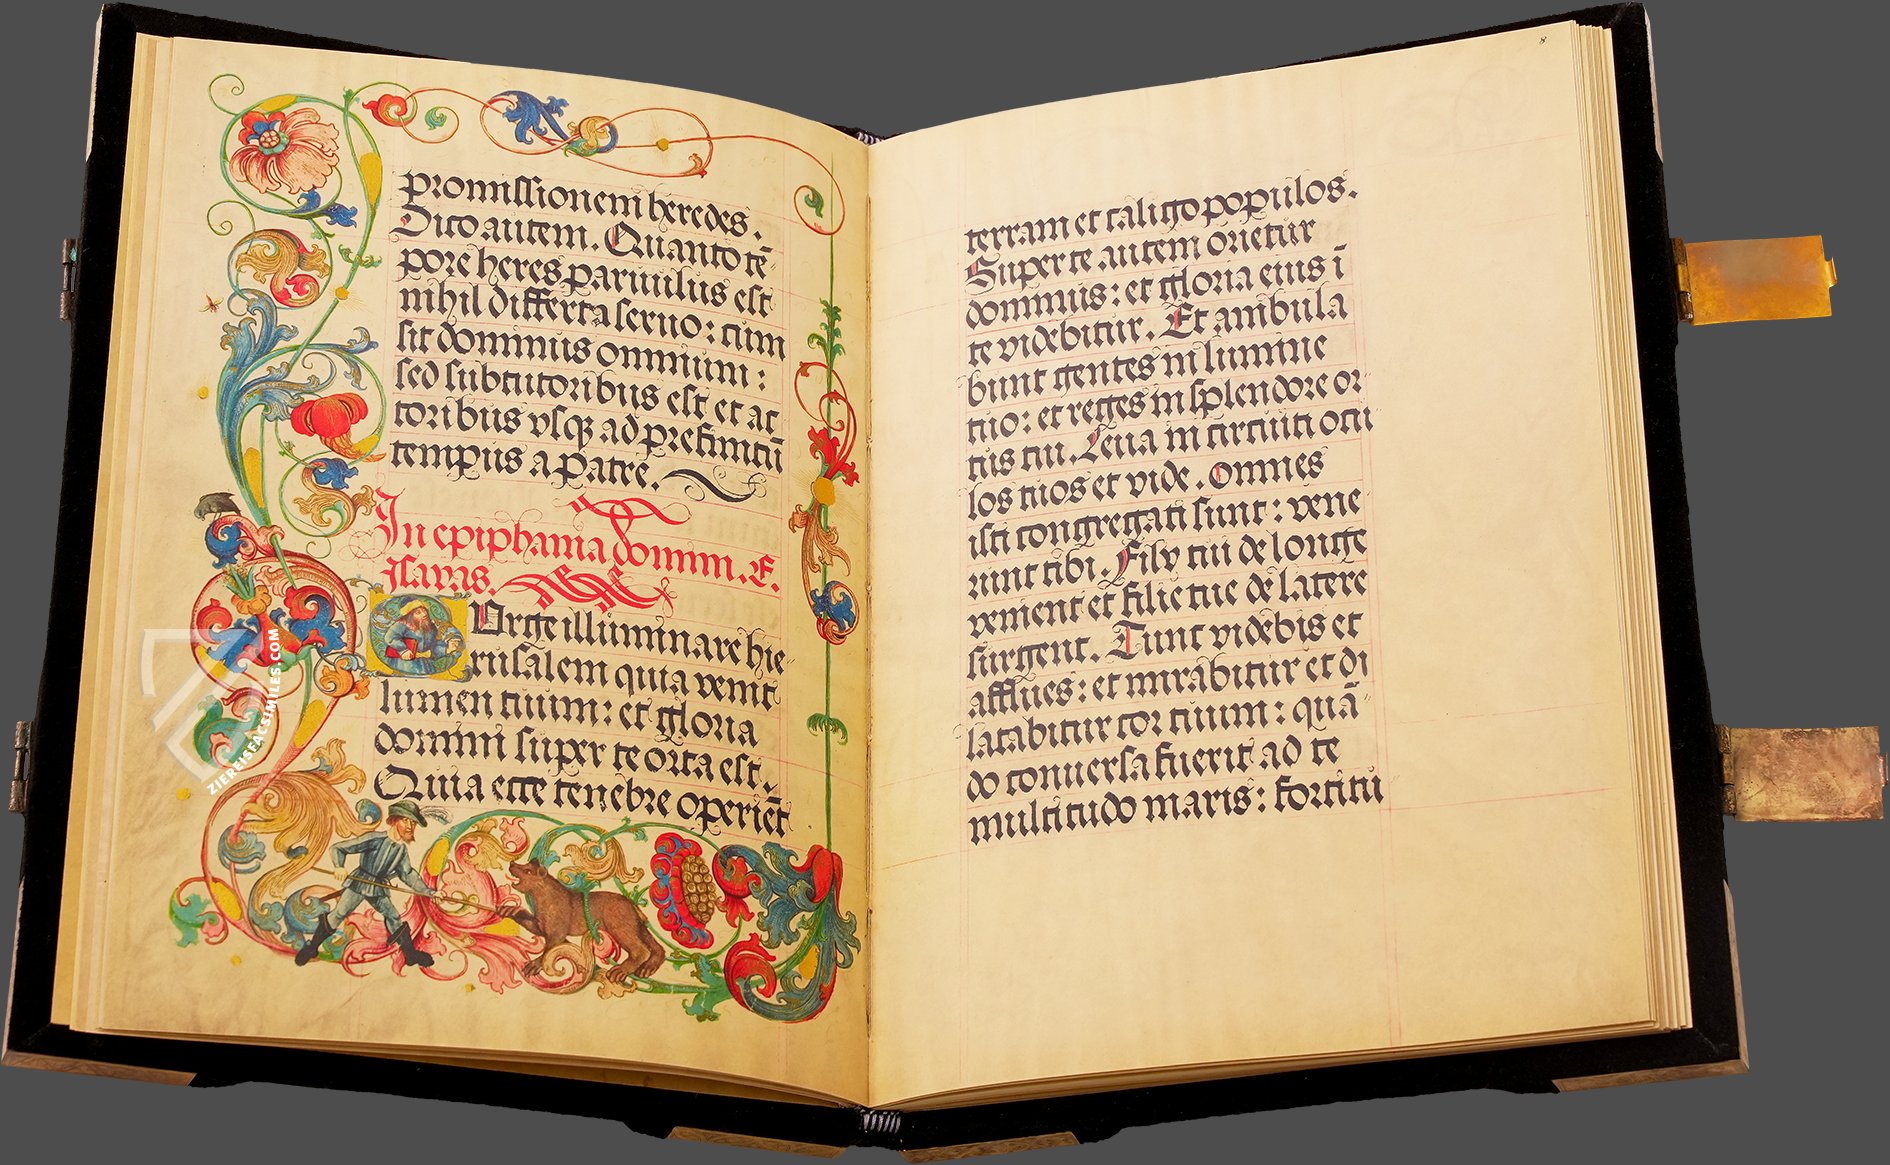 promissionem heredes.
Dico autem. Quanto tē
pore heres paruulus est
nihil differt a seruo: cum
sit dominus omnium:
sed sub tutoribus est et ac
toribus vsqȝ ad prefinitū
tempus a patre.
In epiphania domini. E.
Isayas.
Surge illuminare hie
rusalem quia venit
lumen tuum: et gloria
domini super te orta est.
Quia ecce tenebre operiēt
8
terram et caligo populos.
Super te autem orietur
dominus: et gloria eius ī
te videbitur. Et ambula
bunt gentes in lumine
tuo: et reges in splendore or
tus tui. Leua in circuitu ocu
los tuos et vide. Omnes
isti congregati sunt: vene
runt tibi. Filij tui de longe
venient et filie tue de latere
surgent. Tunc videbis et
afflues: et mirabitur et di
latabitur cor tuum: quā
do conuersa fuerit ad te
multitudo maris: fortitu
ZIEREISFACSIMILES.COM